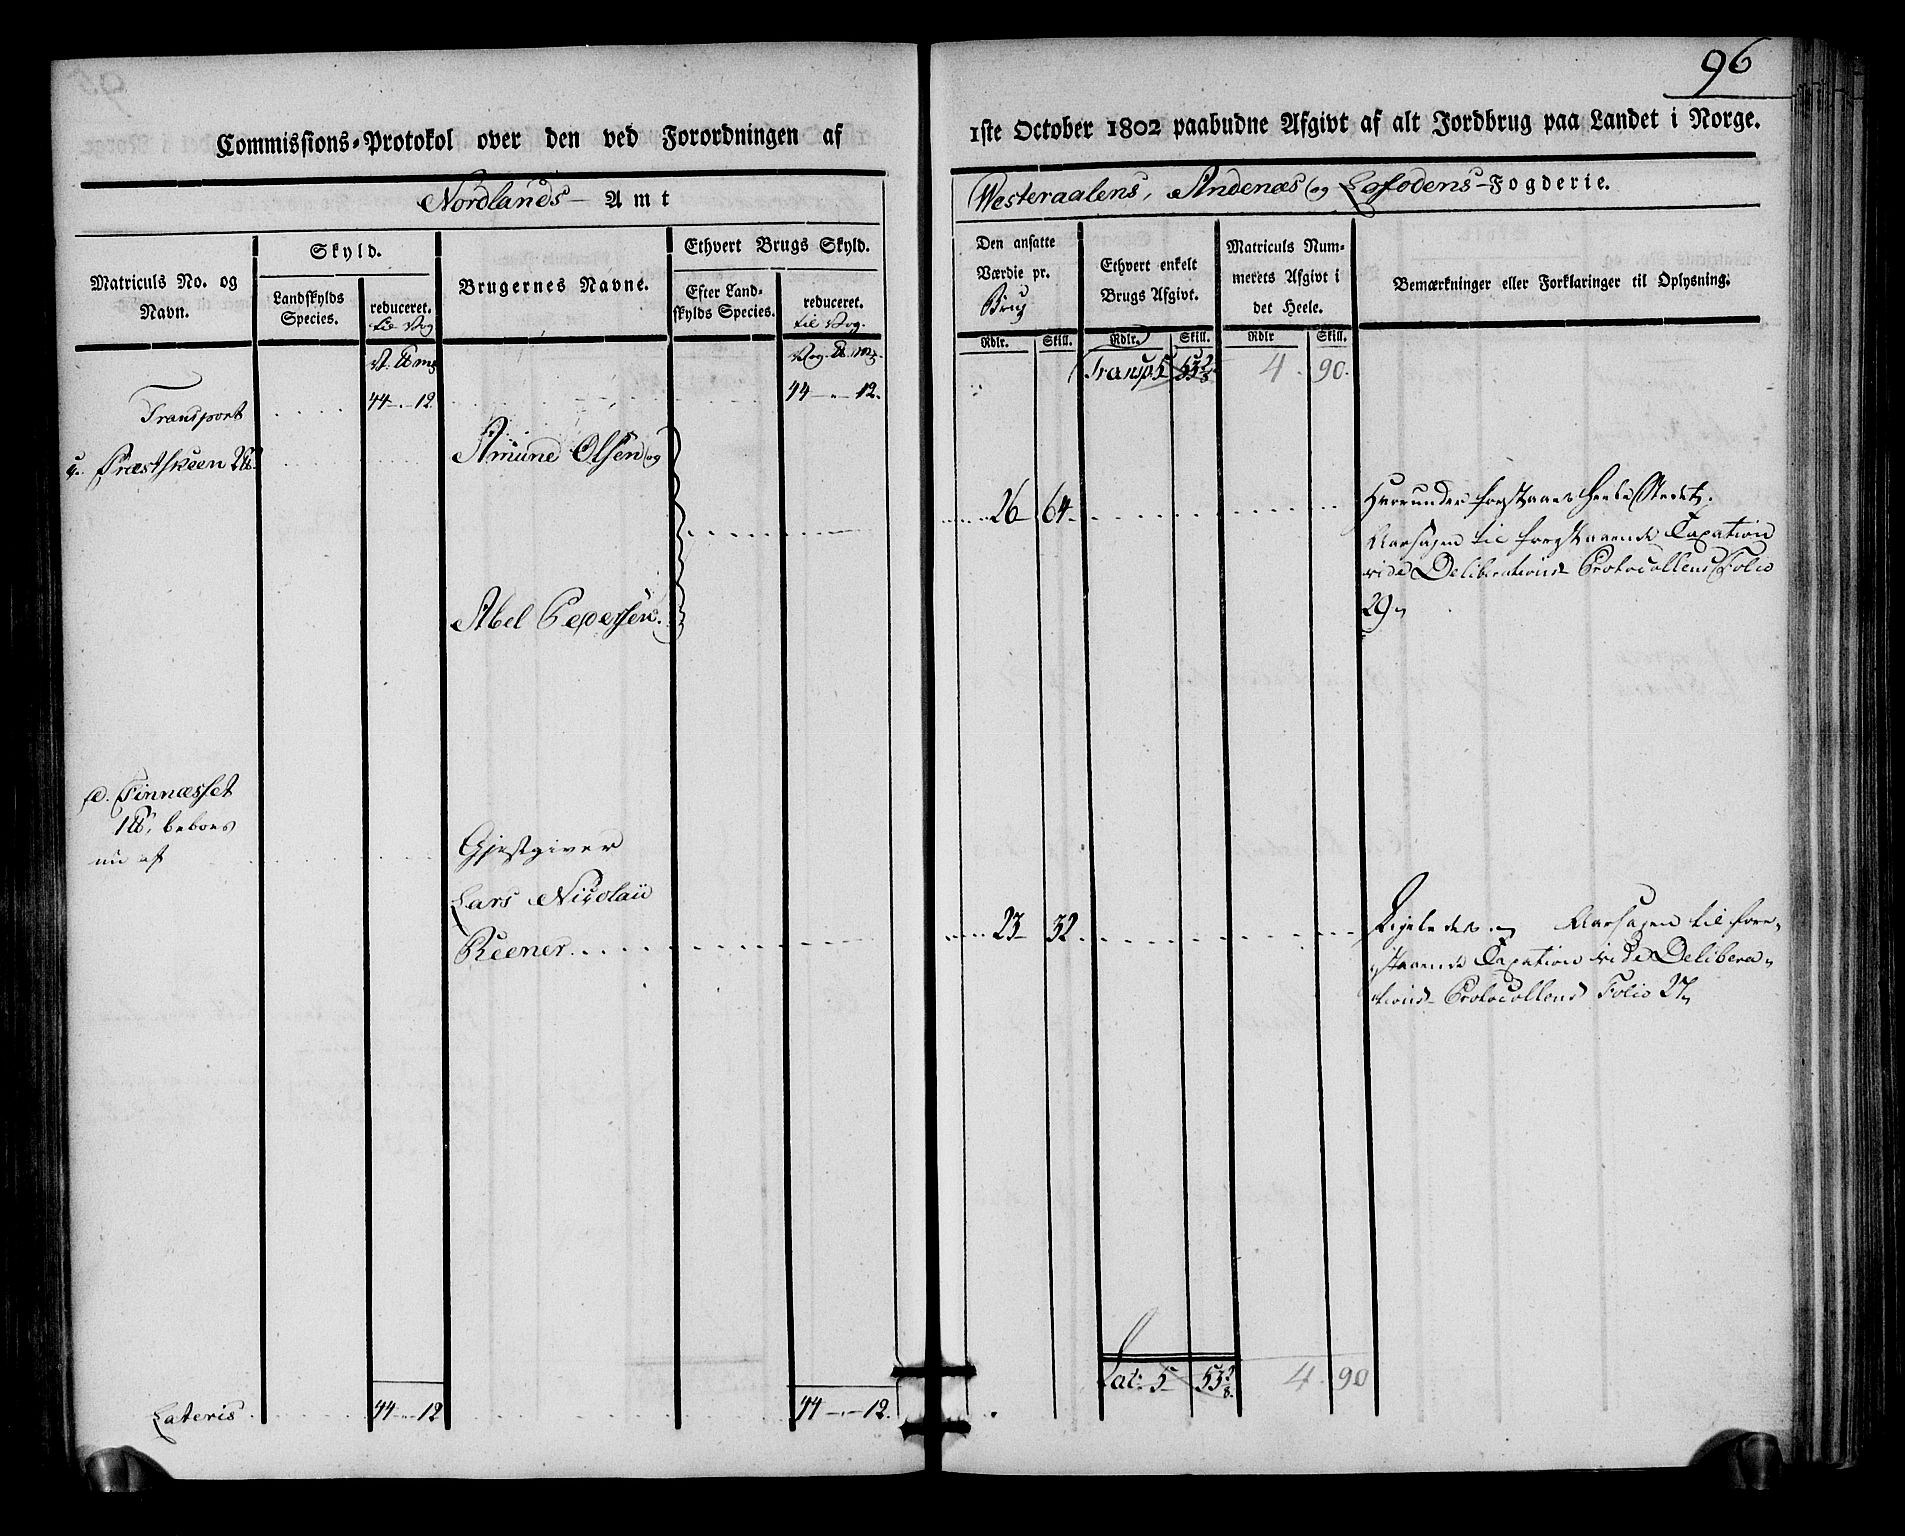 96
Commissions-Protokol over den ved Forordningen af
1ste October 1802 paabudne Afgivt af alt Jordbrug paa Landet i Norge.
Nordlands Amt
Westeraalens, Andenæs og Lofodens-Fogderie.
Matriculs No. og
Navn.
Skyld.
Landskylds
Species.
reduceret.
til Vog
Brugernes Navne.
Ethvert Brugs Skyld.
Efter Land-
skylds Species.
reduceret.
til Vog.
Den ansatte
Værdie pr.
Brug
Ethvert enkelt
Brugs Afgivt.
Matriculs Num-
merets Afgivt i
det Heele.
Bemærkninger eller Forklaringer til Oplysning.
Rdlr. Skill. Rdlr. Skill. Rdlr Skill.
Transp 5 53 4 90.
Transport 44 - " - 12. 44 - " - 12.
Præstskeen
Amund Olsen og
26 64
Herunder forstaaes heele Stedet.
Aarsagen til forestaaende Taxation
vide Deliberations Protocollens Folio
29
Abel Pedersen.
d. Finnæsset
beboes
nu af
Gjestgiver
Lars Nicolaii
Reener
23 32
Ligeledes. Aarsagen til fore-
staaende Taxation vide Delibera-
tions Protocollens Folio 27
Lat: 5 53 4 90
Lateris 44 - " - 12 44 - " - 12.